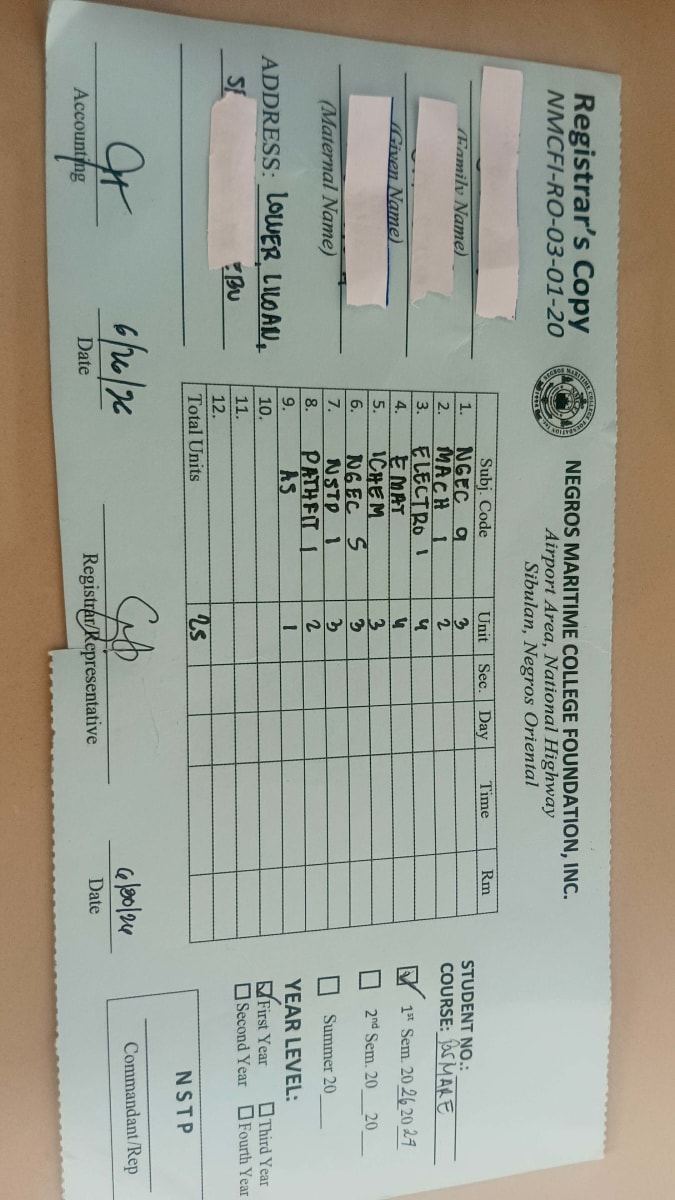 Registrar's Copy
NMCFI-RO-03-01-20
NEGROS MARITIME COLLEGE FOUNDATION, INC.
Airport Area, National Highway
Sibulan, Negros Oriental
(Family Name)
(Given Name)
(Maternal Name)
ADDRESS: LOWER, LILOAN,
EBU
Subj. Code Unit Sec. Day Time Rm
1. NGEC 9 3
2. MACH 1 2
3. ELECTRO 1 4
4. EMAT 4
5. ICHEM 3
6. NGEC 5 3
7. NSTP 1 3
8. PATHFIT 1 2
9. AS 1
10.
11.
12.
Total Units 25
STUDENT NO.:
COURSE: BSMARE
1st Sem. 20 26 20 27
2nd Sem. 20__20__
Summer 20____
YEAR LEVEL:
First Year Third Year
Second Year Fourth Year
NSTP
Commandant/Rep
6/26/26
Accounting Date
Registrar/Representative Date